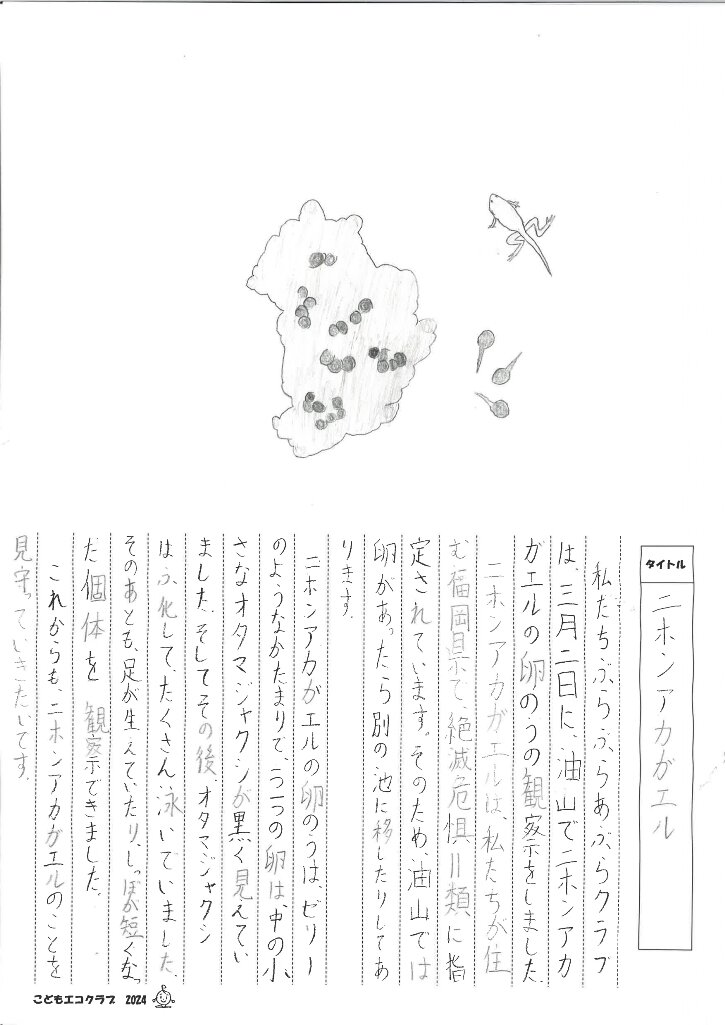 タイトル
ニホンアカガエル
私たちぶらぶらあぶらクラブ
は、三月二日に、油山でニホンアカ
ガエルの卵のうの観察をしました。
ニホンアカガエルは、私たちが住
む福岡県で、絶滅危惧II類に指
定されています。そのため、油山では
卵があったら別の池に移したりしてあ
ります。
ニホンアカガエルの卵のうは、ゼリー
のようなかたまりで、う一つの卵は、中の小
さなオタマジャクシが黒く見えてい
ました。そしてその後、オタマジャクシ
はふ化して、たくさん泳いでいました。
そのあとも、足が生えていたり、しっぽが短くなっ
た個体を観察できました。
これからも、ニホンアカガエルのことを
見守っていきたいです。
こどもエコクラブ 2024